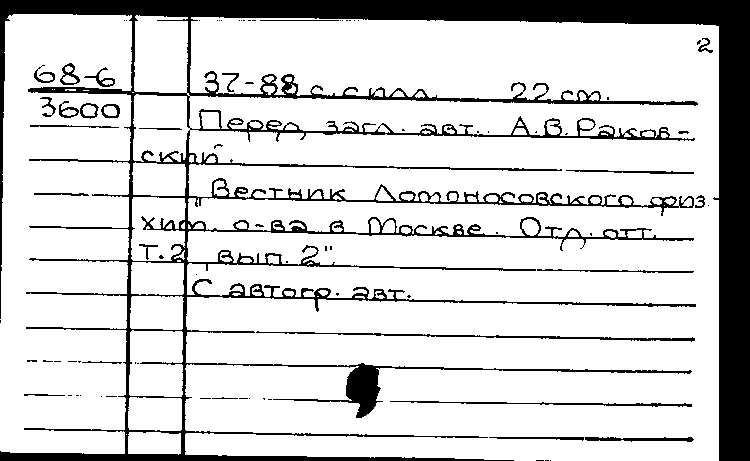 2
68-6 37-88 с. с илл. 22 см.
3600 Перед загл. авт. А.В. Раков-
ский.
„Вестник Ломоносовского физ.-
хим. о-ва в Москве. Отд. отт.
Т.2, вып. 2".
С автогр. авт.